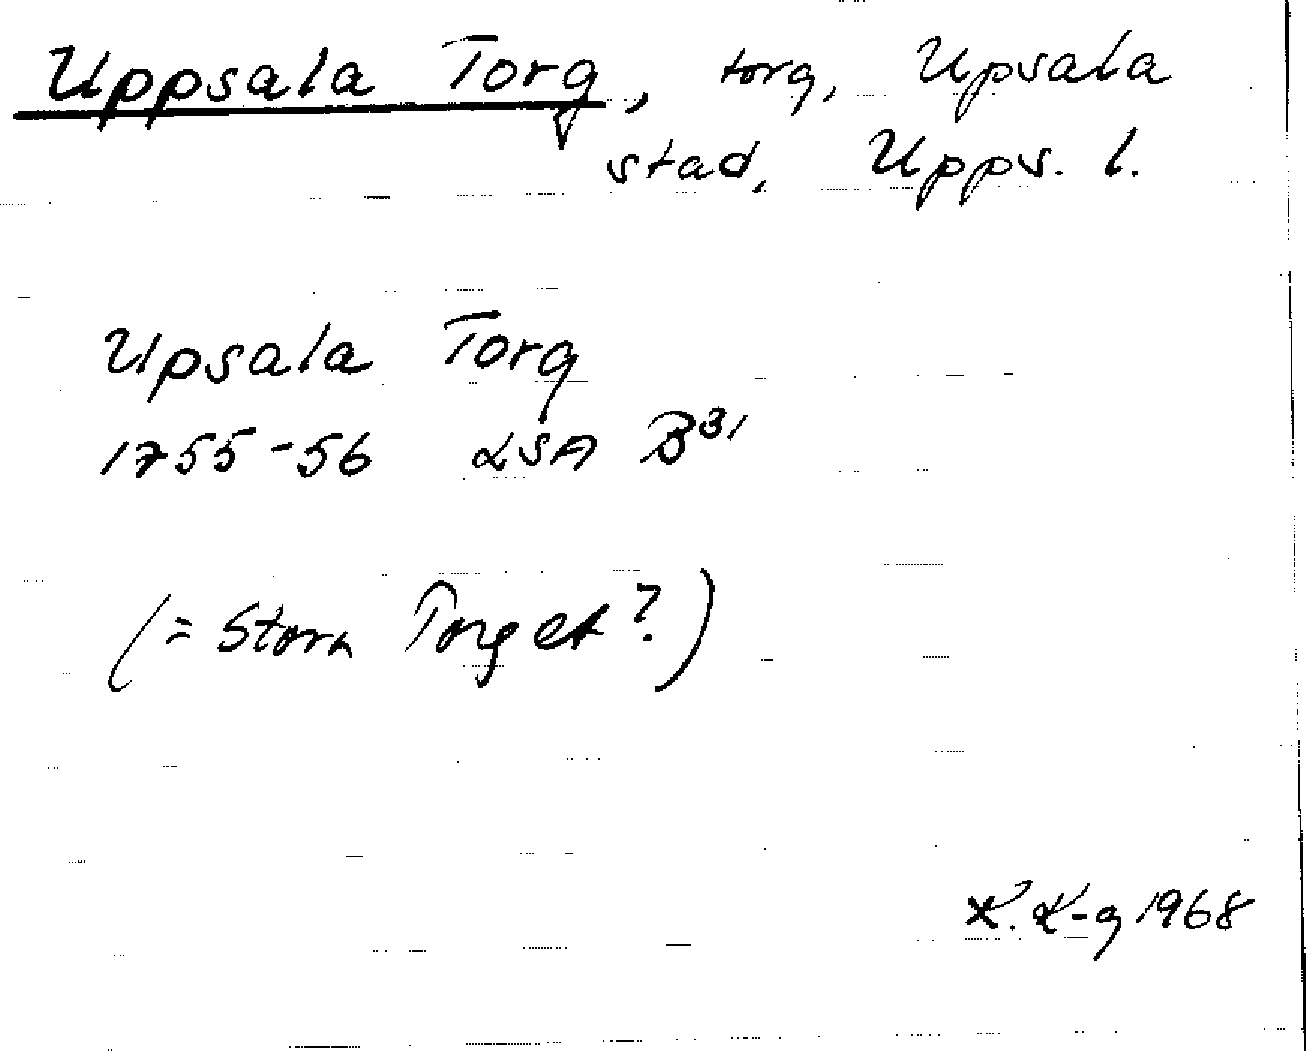 Uppsala Torg, torg, Upsala
stad, Upps. l.
Upsala Torg
1755-56 LSA B³¹
(= Stora Torget?)
1968